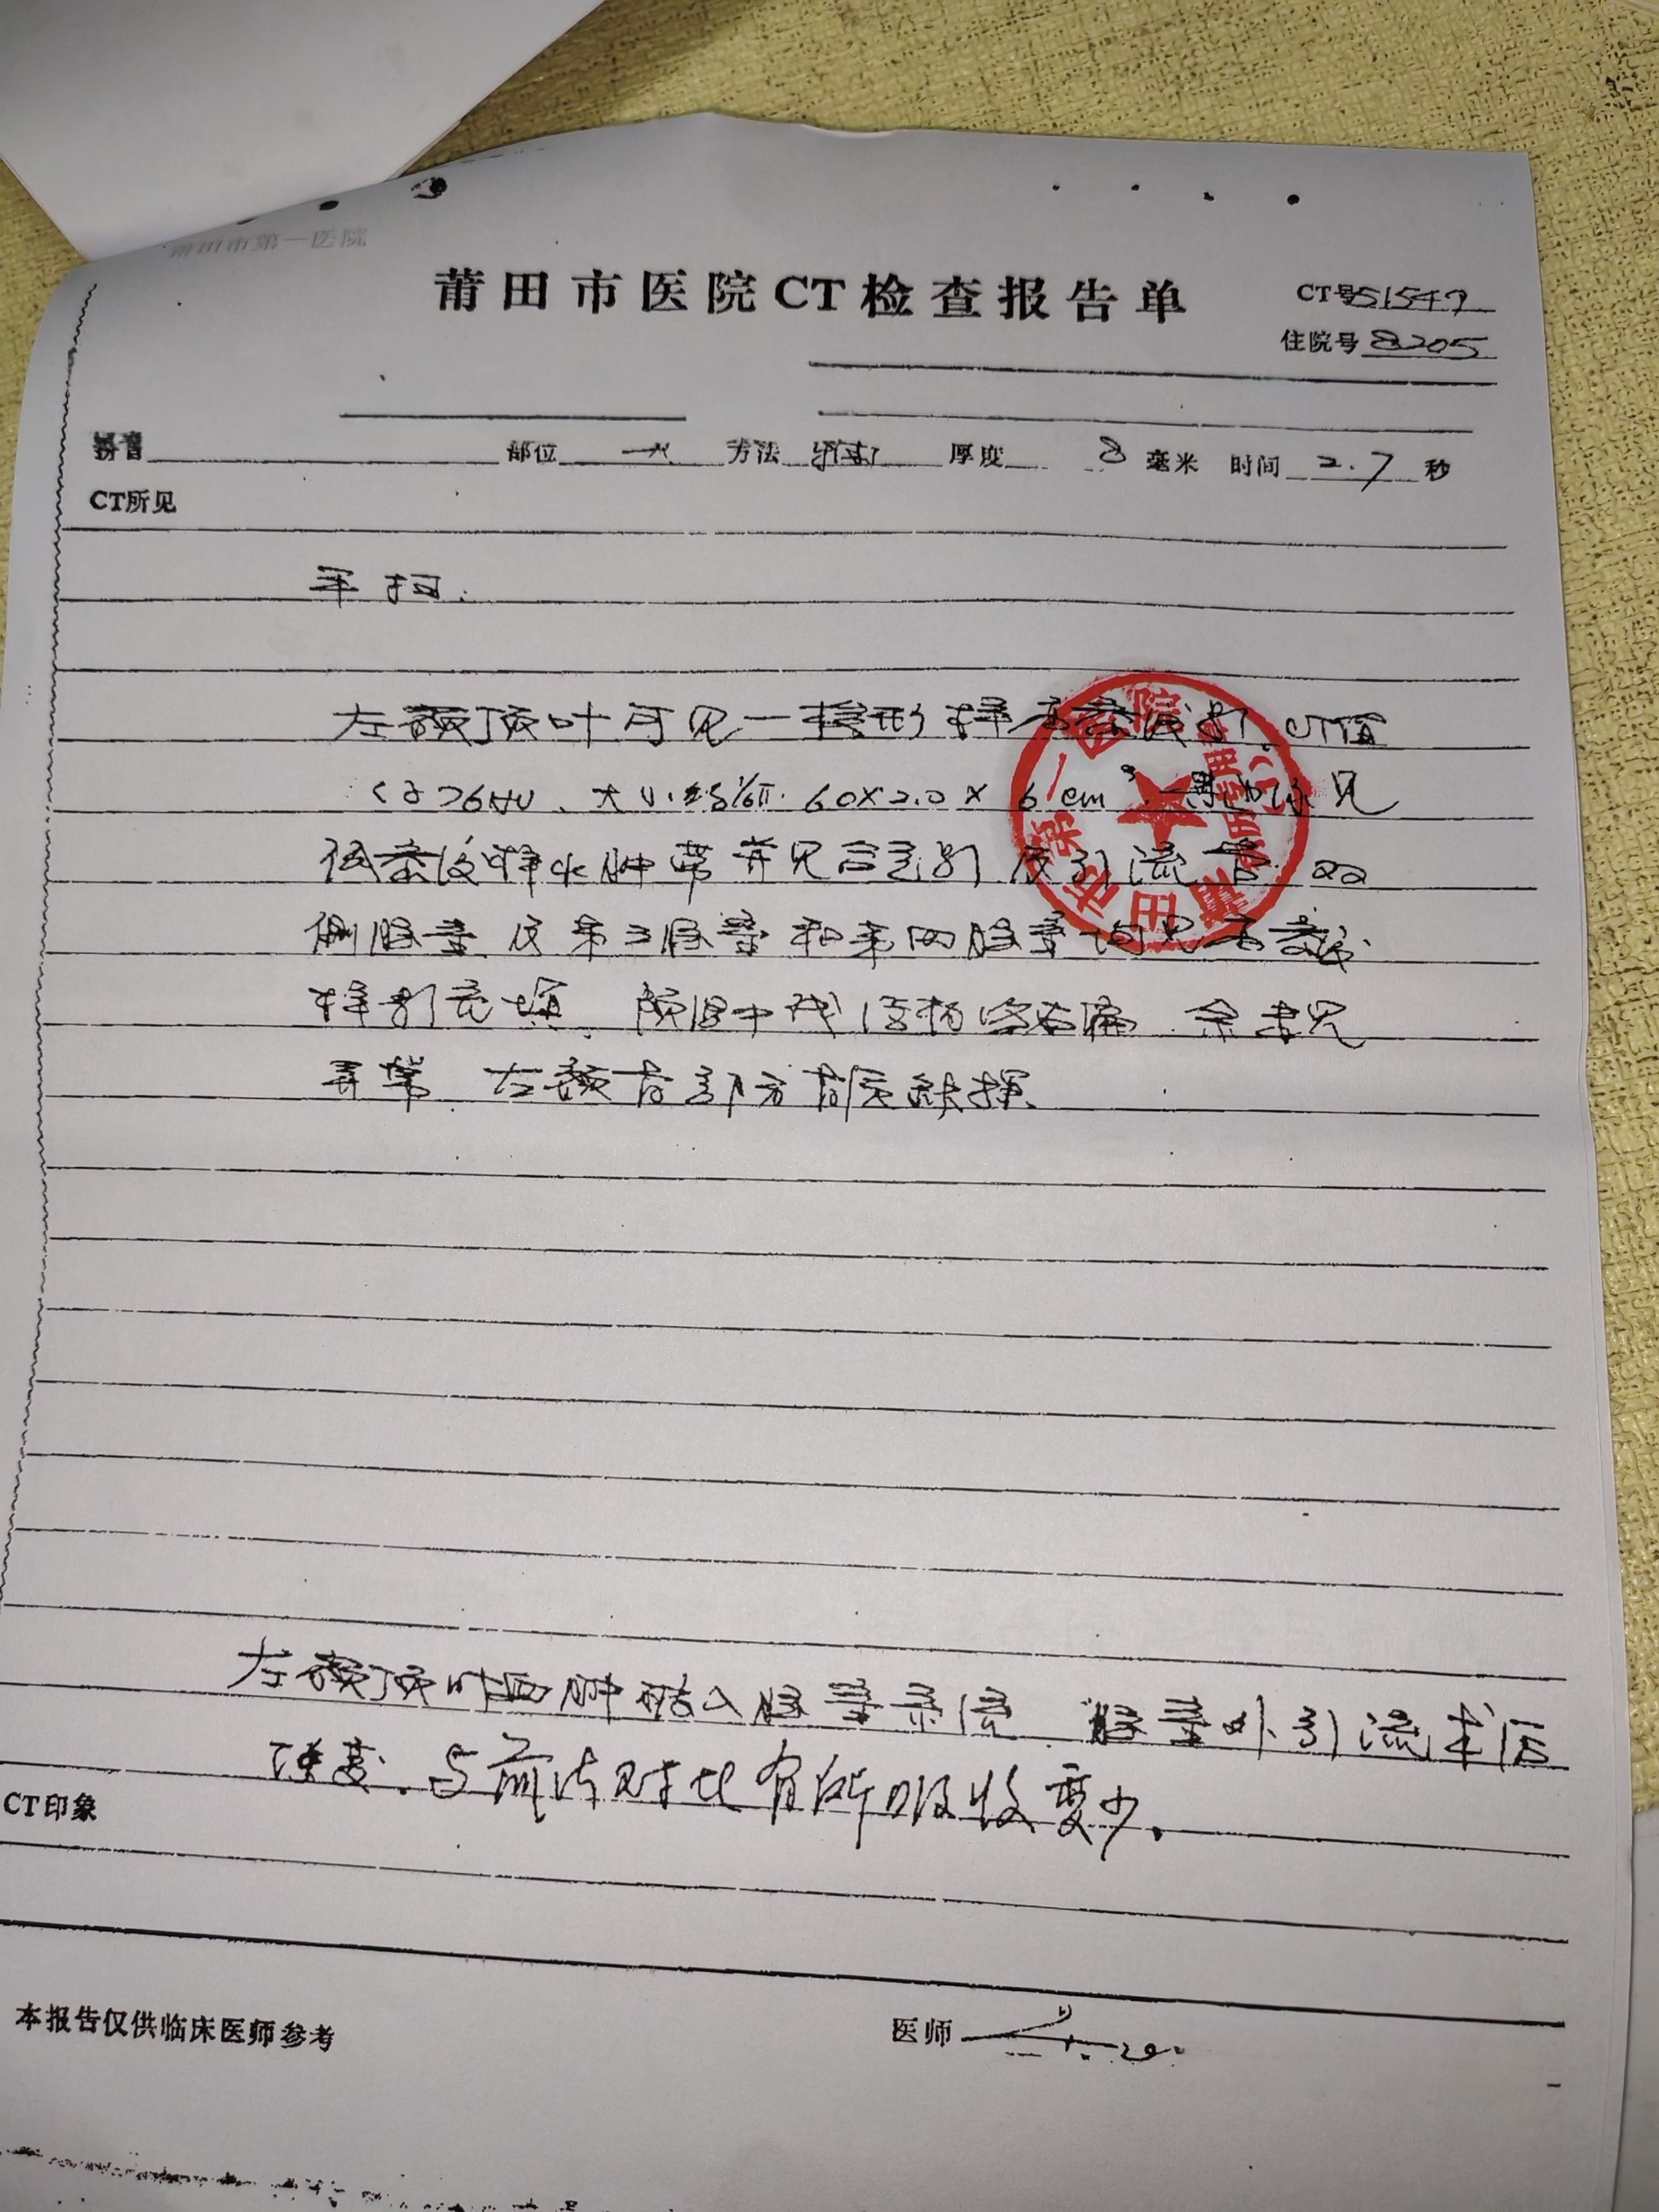 莆田市第一医院
莆田市医院CT检查报告单
CT号51547
住院号 8205
部位 方法 厚度 8 毫米 时间 2.7 秒
CT所见
平扫:
左额顶叶可见一 形样高密度影,CT值
76HU、大小约 6.0×2.0×6cm³,周边见
低密度样水肿带并见台气影及引流管.双
侧脑室及第三脑室和第四脑室均见高密度
样影充填,脑中线结构 右偏,余未见
异常.左额 部分 质缺损.
左额顶叶血肿破入脑室系统,脑室外引流术后
改变.与前片对比有所吸收变少.
CT印象
本报告仅供临床医师参考
医师
莆田市第一医院